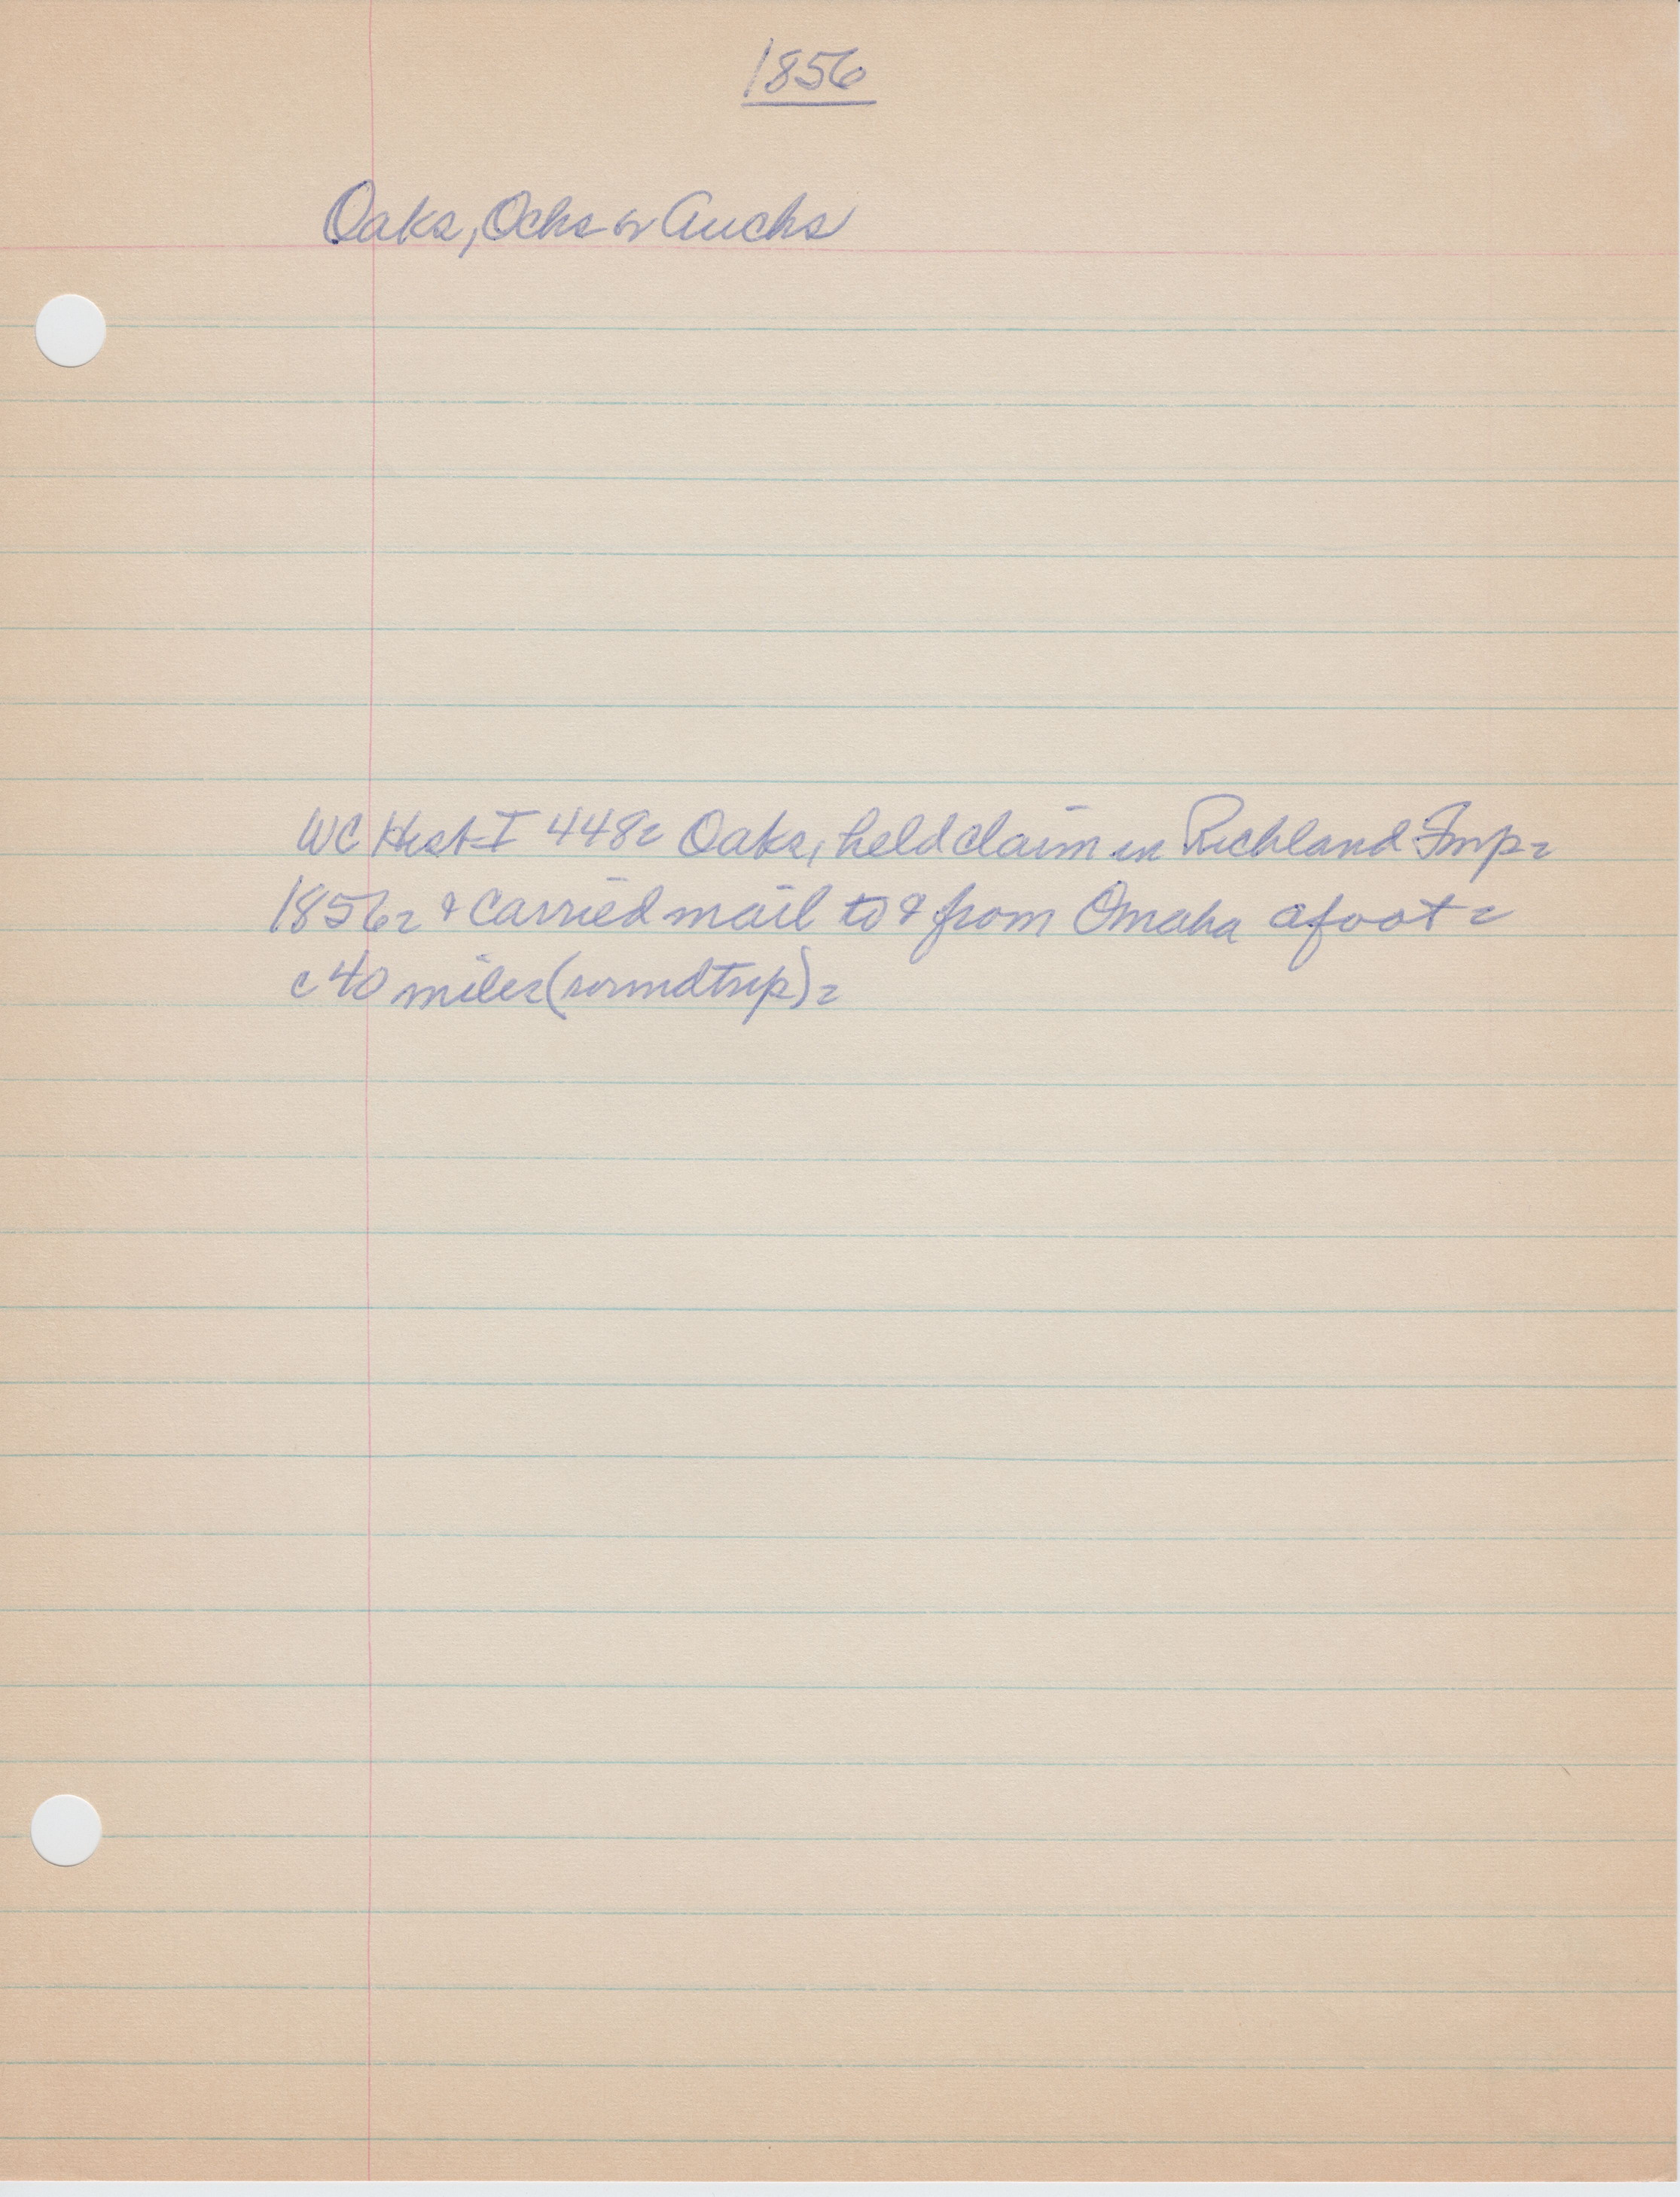 1856
Oaks, Ochs or Auchs
WC Hist I 448= Oaks, held claim in Richland Twp=
1856= & carried mail to & from Omaha afoot=
c 40 miles (roundtrip)=